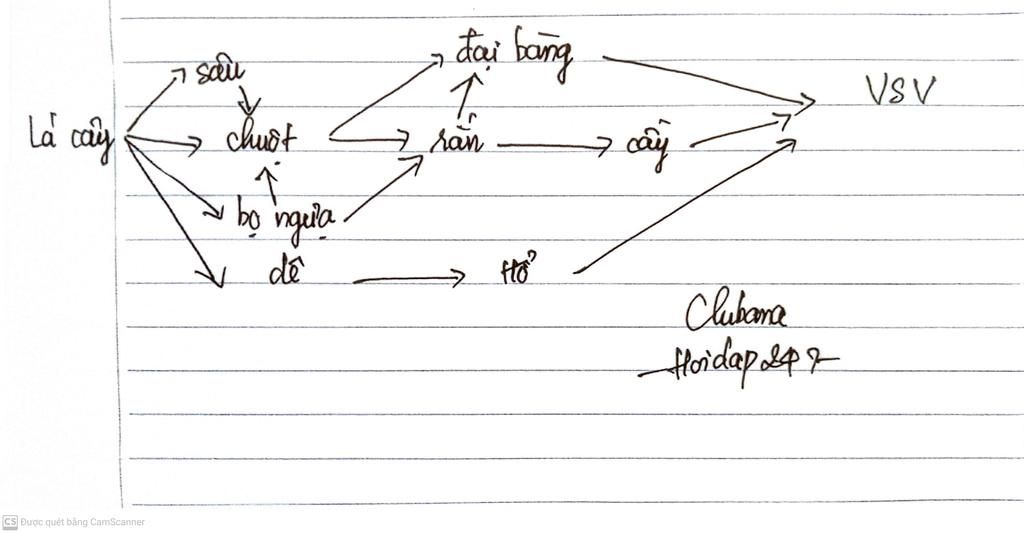 đại bàng
sâu
VSV
Lá cây
chuột
rắn
cầy
bọ ngựa
dê
Hổ
Clubama
Hoidap247
CS Được quét bằng CamScanner